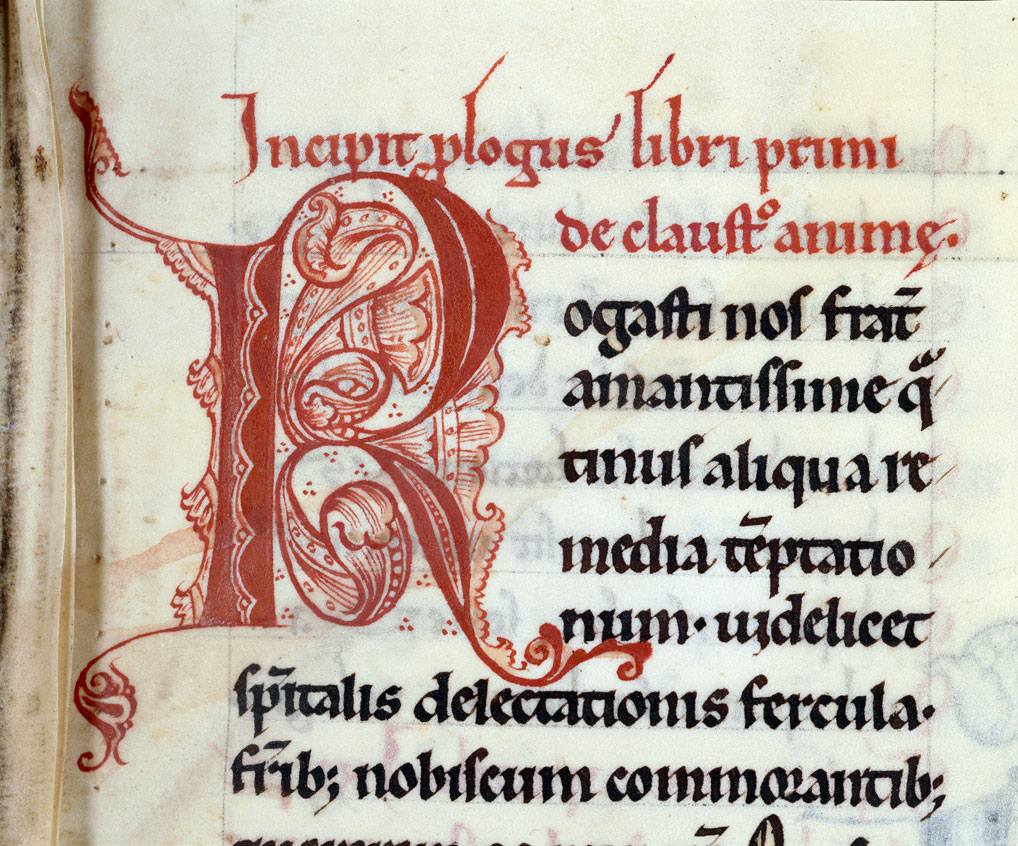 Incipit ꝓlogus libri primi
de clauſtͦo anime̜.
Rogaſti nos frat̄
amantiſſime qͣ̄
tinuſ aliqua re
media tēptatio
num. uidelicet
ſpītalis delectationis fercula.
fr̄ib; nobiſcum commorantib;